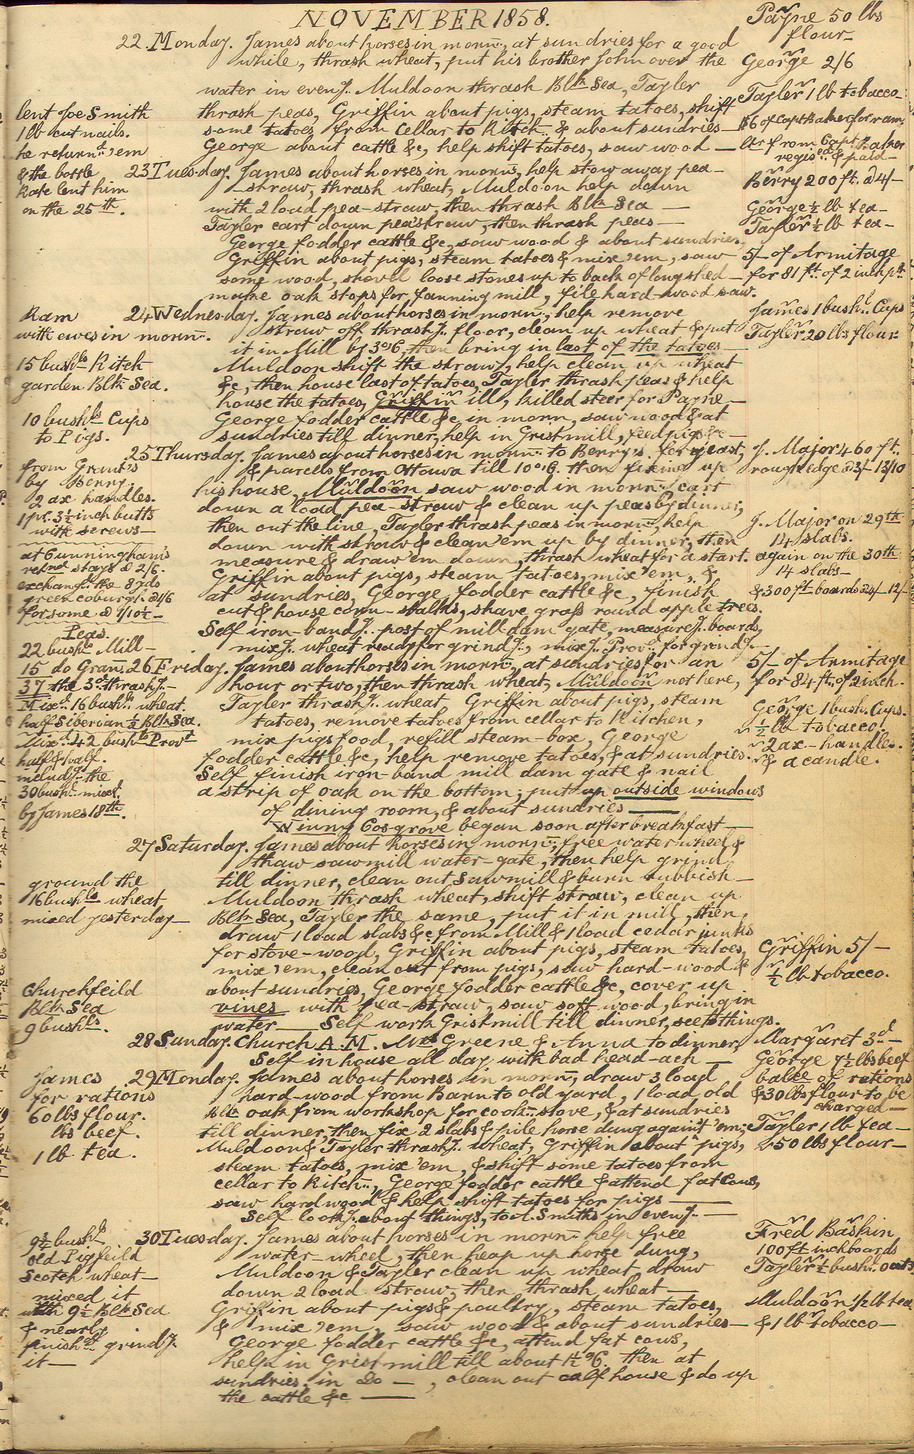 NOVEMBER 1858.
Payne 50 lbs
flour
22 Monday. James about horses in mornn., at sundries for a good
while, thrash wheat, put his brother John over the
George 2/6
water in eveng. Muldoon thrash Blk. Sea, Tayler
Tayler 1 lb tobacco
lent Joe Smith
thrash peas, Griffin about pigs, steam tatoes, shift
1 lb cut nails.
some tatoes from Cellar to Kitchn. & about sundries
$6 of Capt Baker for ram
he returnd. 'em
George about cattle &c, help shift tatoes, saw wood —
Ltr from Capt Baker
regisd. & paid—
& the bottle
Kate lent him
on the 25th.
23 Tuesday. James about horses in mornn, help stow away pea-
straw, thrash wheat, Muldoon help down
Berry 200 ft. @ 4/-
with 2 load pea-straw, then thrash Blk Sea —
George ½ lb tea-
Tayler cart down pea straw, then thrash peas
Tayler ½ lb tea-
George fodder cattle &c, saw wood & about sundries,
Griffin about pigs, steam tatoes & mix 'em, saw
5/- of Armitage
some wood, shovel loose stones up to back of long shed —
for 81 ft. of 2 inch pk.
make oak stops for fanning mill, file hard-wood saw.
Ram
with ewes in mornn.
24 Wednesday. James about horses in mornn, help remove
James 1 bushl. Cups
straw off thrashg. floor, clean up wheat & put
Tayler 20 lbs flour
it in Mill by 3 o'c, then bring in last of the tatoes —
15 bushls Kitch
garden Blk. Sea.
Muldoon shift the straw, help clean up wheat
&c, then house last of tatoes, Tayler thrash peas & help
house the tatoes, Griffin ill, killed steer for Payne —
10 bushls Cups
to Pigs.
George fodder cattle &c, in mornn, saw wood & at
sundries till dinner, help in Grist mill, feed pigs &c —
25 Thursday. James about horses in mornn. to Berry's for yeast,
J. Major 460 ft.
from Grant's
by Berry.
& parcels from Ottawa till 10 o'c. then fixing up
rough edge @ 3/- 13/10
2 ax handles.
his house, Muldoon saw wood in mornn, cart
1 pr. 3½ inch butts
with screws—
down a load pea-straw & clean up peas by dinner,
then out the line, Tayler thrash peas in mornn, help
J. Major on 29th
14 slabs.
at Cunningham's
down with straw & clean 'em up by dinner, then
retnd stays @ 2/6.
measure & draw 'em down, thrash wheat for a start.
again on the 30th
14 slabs—
exchangd. the 8 yds
Griffin about pigs, steam tatoes, mix 'em, &
green coburgh @ 1/6
at sundries, George, fodder cattle &c, finish
& 300 ft boards @ 4/- 12/-
for some @ 1/10½—
cut & house corn-stalks, shave grass round apple trees.
Peas.
Self iron-bandg. post of mill dam gate, measureg. boards,
22 bushls Mill—
mixg. wheat ready for grindg., mixg. Provr. for grindg.
15 do Gran:
26 Friday. James about horses in mornn, at sundries for an
5/- of Armitage
37 the 3d. thrashg.—
hour or two, then thrash wheat, Muldoon not here,
for 84 ft. of 2 inch.
Mixd. 16 bushls wheat.
Tayler thrashg. wheat Griffin about pigs, steam
George 1 bush. Cups.
half Siberian ½ Blk. Sea.
tatoes, remove tatoes from cellar to Kitchen,
" ½ lb tobacco.
Mixd. 42 bushls Provr
mix pigs food, refill steam-box, George
" 2 ax-handles.
half & half.
fodder cattle &c, help remove tatoes, & at sundries.
" & a candle.
includg. the
Self finish iron-band mill dam gate & nail
30 bushls mixd.
a strip of oak on the bottom, put up outside windows
by James 18th.
of dining room, & about sundries —
Winny Cosgrove began soon after breakfast —
27 Saturday. James about horses in mornn, free water wheel &
thaw sawmill water-gate, then help grind
ground the
till dinner, clean out Sawmill & burn rubbish —
16 bushls wheat
Muldoon thrash wheat, shift straw, clean up
mixed yesterday—
Blk. Sea, Tayler the same, put it in mill, then,
draw 1 load slabs &c from Mill & 1 load cedar junks
for stove-wood, Griffin about pigs, steam tatoes,
Griffin 5/-
mix 'em, clean out from pigs, saw hard-wood &
" ½ lb tobacco.
Churchfeild
about sundries, George fodder cattle &c, cover up
Blk Sea
vines with pea-straw, saw soft wood, bring in
9 bushls.
water — Self work Gristmill till dinner, see to things.
28 Sunday. Church A.M. Mrs Greene & Anna to dinner,
Margaret 3d—
Self in house all day with bad head-ach —
George 7½ lbs beef
James
29 Monday. James about horses in mornn, draw 3 load
balce of rations
for rations
hard-wood from Barn to old yard, 1 load old
& 30 lbs flour to be
charged—
60 lbs flour.
Blk oak from workshop for cookn. stove, & at sundries
lbs beef.
till dinner, then fix 2 slabs & pile horse dung against 'em;
Tayler 1 lb tea—
1 lb tea.
Muldoon & Tayler thrashg. wheat, Griffin about pigs,
& 50 lbs flour—
steam tatoes, mix 'em, & shift some tatoes from
cellar to Kitchn., George fodder cattle & attend fat Cows,
saw hard wood & help shift tatoes for pigs —
Self lookg. about things, to J. Smiths in eveng. —
9½ bushl
30 Tuesday. James about horses in mornn. help free
Fred Baskin
old Pigfeild
water-wheel, then heap up horse dung,
100 ft inch boards
Scotch wheat—
Muldoon & Tayler clean up wheat, draw
Tayler ½ bushl. oats
mixed it
down 2 load straw, then thrash wheat —
with 9½ Blk Sea
Griffin about pigs & poultry, steam tatoes,
Muldoon ½ lb tea
& nearly
& mix 'em, saw wood & about sundries —
& 1 lb tobacco—
finishd. grindg.
George fodder cattle &c, attend fat cows,
it—
help in Grist mill till about 1½ o'c. then at
sundries, in Do —, clean out calf house & do up
the cattle &c —